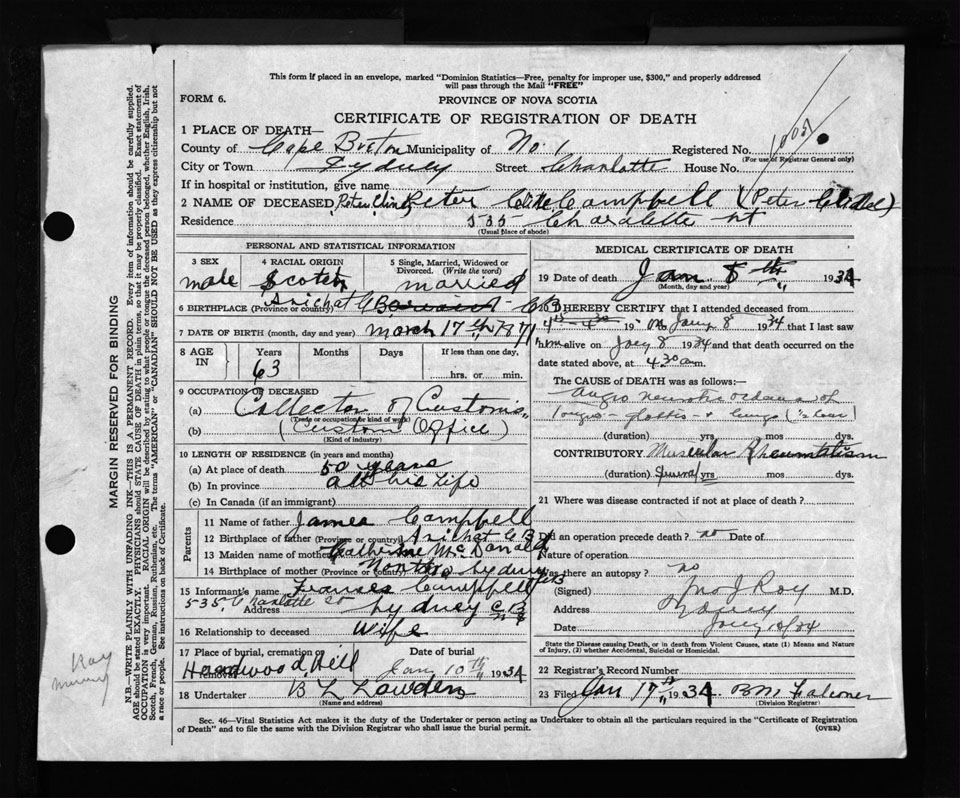 This form if placed in an envelope, marked "Dominion Statistics—Free, penalty for improper use, $300," and properly addressed
will pass through the Mail "FREE"
FORM 6.
PROVINCE OF NOVA SCOTIA
CERTIFICATE OF REGISTRATION OF DEATH
1 PLACE OF DEATH—
County of Cape Breton Municipality of No. 1 Registered No. 1005
(For use of Registrar General only)
City or Town Sydney Street Charlotte House No.
If in hospital or institution, give name
2 NAME OF DECEASED Peter Campbell (Peter
Residence 535 Charlotte st
(Usual place of abode)
PERSONAL AND STATISTICAL INFORMATION
3 SEX 4 RACIAL ORIGIN 5 Single, Married, Widowed or Divorced. (Write the word)
male Scotch married
6 BIRTHPLACE (Province or country) Arichat C B
7 DATE OF BIRTH (month, day and year) March 17th 1871
8 AGE IN Years Months Days If less than one day,
63 hrs. or min.
9 OCCUPATION OF DECEASED
(a) Collector of Customs
(Trade or occupation or kind of work)
(b) (Customs Office)
(Kind of industry)
10 LENGTH OF RESIDENCE (in years and months)
(a) At place of death 50 years
(b) In province all his life
(c) In Canada (if an immigrant)
Parents
11 Name of father James Campbell
12 Birthplace of father (Province or country) Arichat C B
13 Maiden name of mother Catherine McDonald
14 Birthplace of mother (Province or country) North Sydney C B
15 Informant's Name Frances Campbell
Address 535 Charlotte st Sydney C B
16 Relationship to deceased Wife
17 Place of burial, cremation or removal Date of burial
Hardwood Hill Jan 10th 1934
18 Undertaker B L Lowden
(Name and address)
MEDICAL CERTIFICATE OF DEATH
19 Date of death Jan 8th 1934
(Month, day and year)
20 I HEREBY CERTIFY that I attended deceased from
19 to Jany 8 1934 that I last saw
him alive on Jany 8 1934 and that death occurred on the
date stated above, at 4.30 a m.
The CAUSE OF DEATH was as follows:—
Angio neurotic oedema of
tongue - glottis - + lungs
(duration) yrs. mos dys.
CONTRIBUTORY Muscular Rheumatism
(duration) yrs mos dys.
21 Where was disease contracted if not at place of death?
Did an operation precede death? no Date of
Nature of operation
Was there an autopsy? no
(Signed) Jno J Roy M.D.
Address Sydney
Date Jany 10/34
State the Disease causing Death, or in death from Violent Causes, state (1) Means and
Nature of Injury, (2) whether Accidental, Suicidal or Homicidal.
22 Registrar's Record Number
23 Filed Jan 17th 1934. B M Falconer
(Division Registrar)
Sec. 46—Vital Statistics Act makes it the duty of the Undertaker or person acting as Undertaker to obtain all the particulars required in the "Certificate of Registration
of Death" and to file the same with the Division Registrar who shall issue the burial permit.
(OVER)
MARGIN RESERVED FOR BINDING
N.B.—WRITE PLAINLY WITH UNFADING INK—THIS IS A PERMANENT RECORD. Every item of information should be carefully supplied.
AGE should be stated EXACTLY. PHYSICIANS should STATE CAUSE OF DEATH in plain terms, so that it may be properly classified. Exact statement of
OCCUPATION is very important. RACIAL ORIGIN will be described by stating to what people or tongue the deceased person belonged, whether English, Irish,
Scotch, French, German, Russian, Ruthenian, etc. The terms "AMERICAN" or "CANADIAN" SHOULD NOT BE USED as they express citizenship but not
a race or people. See instructions on back of Certificate.